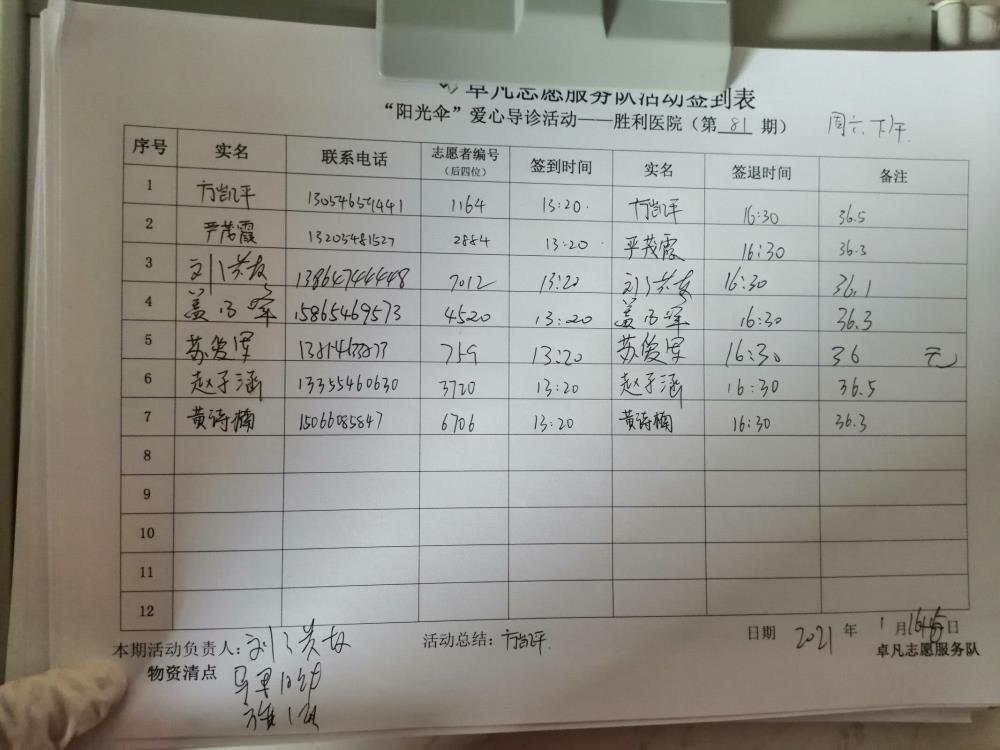 卓凡志愿服务队活动签到表
“阳光伞”爱心导诊活动——胜利医院（第 81 期） 周六下午
序号 实名 联系电话 志愿者编号（后四位） 签到时间 实名 签退时间 备注
1 方凯平 13054659441 1164 13:20 方凯平 16:30 36.5
2 严茂霞 13205481527 2884 13:20 严茂霞 16:30 36.3
3 刘 13864744448 7012 13:20 刘 16:30 36.1
4 盖 15865469573 4520 13:20 盖 16:30 36.3
5 苏俊军 759 13:20 苏俊军 16:30 36
6 赵子涵 13355460630 3720 13:20 赵子涵 16:30 36.5
7 黄诗楠 15066085847 6706 13:20 黄诗楠 16:30 36.3
8
9
10
11
12
本期活动负责人: 刘 活动总结: 方凯平 日期 2021 年 1 月 日
物资清点 卓凡志愿服务队